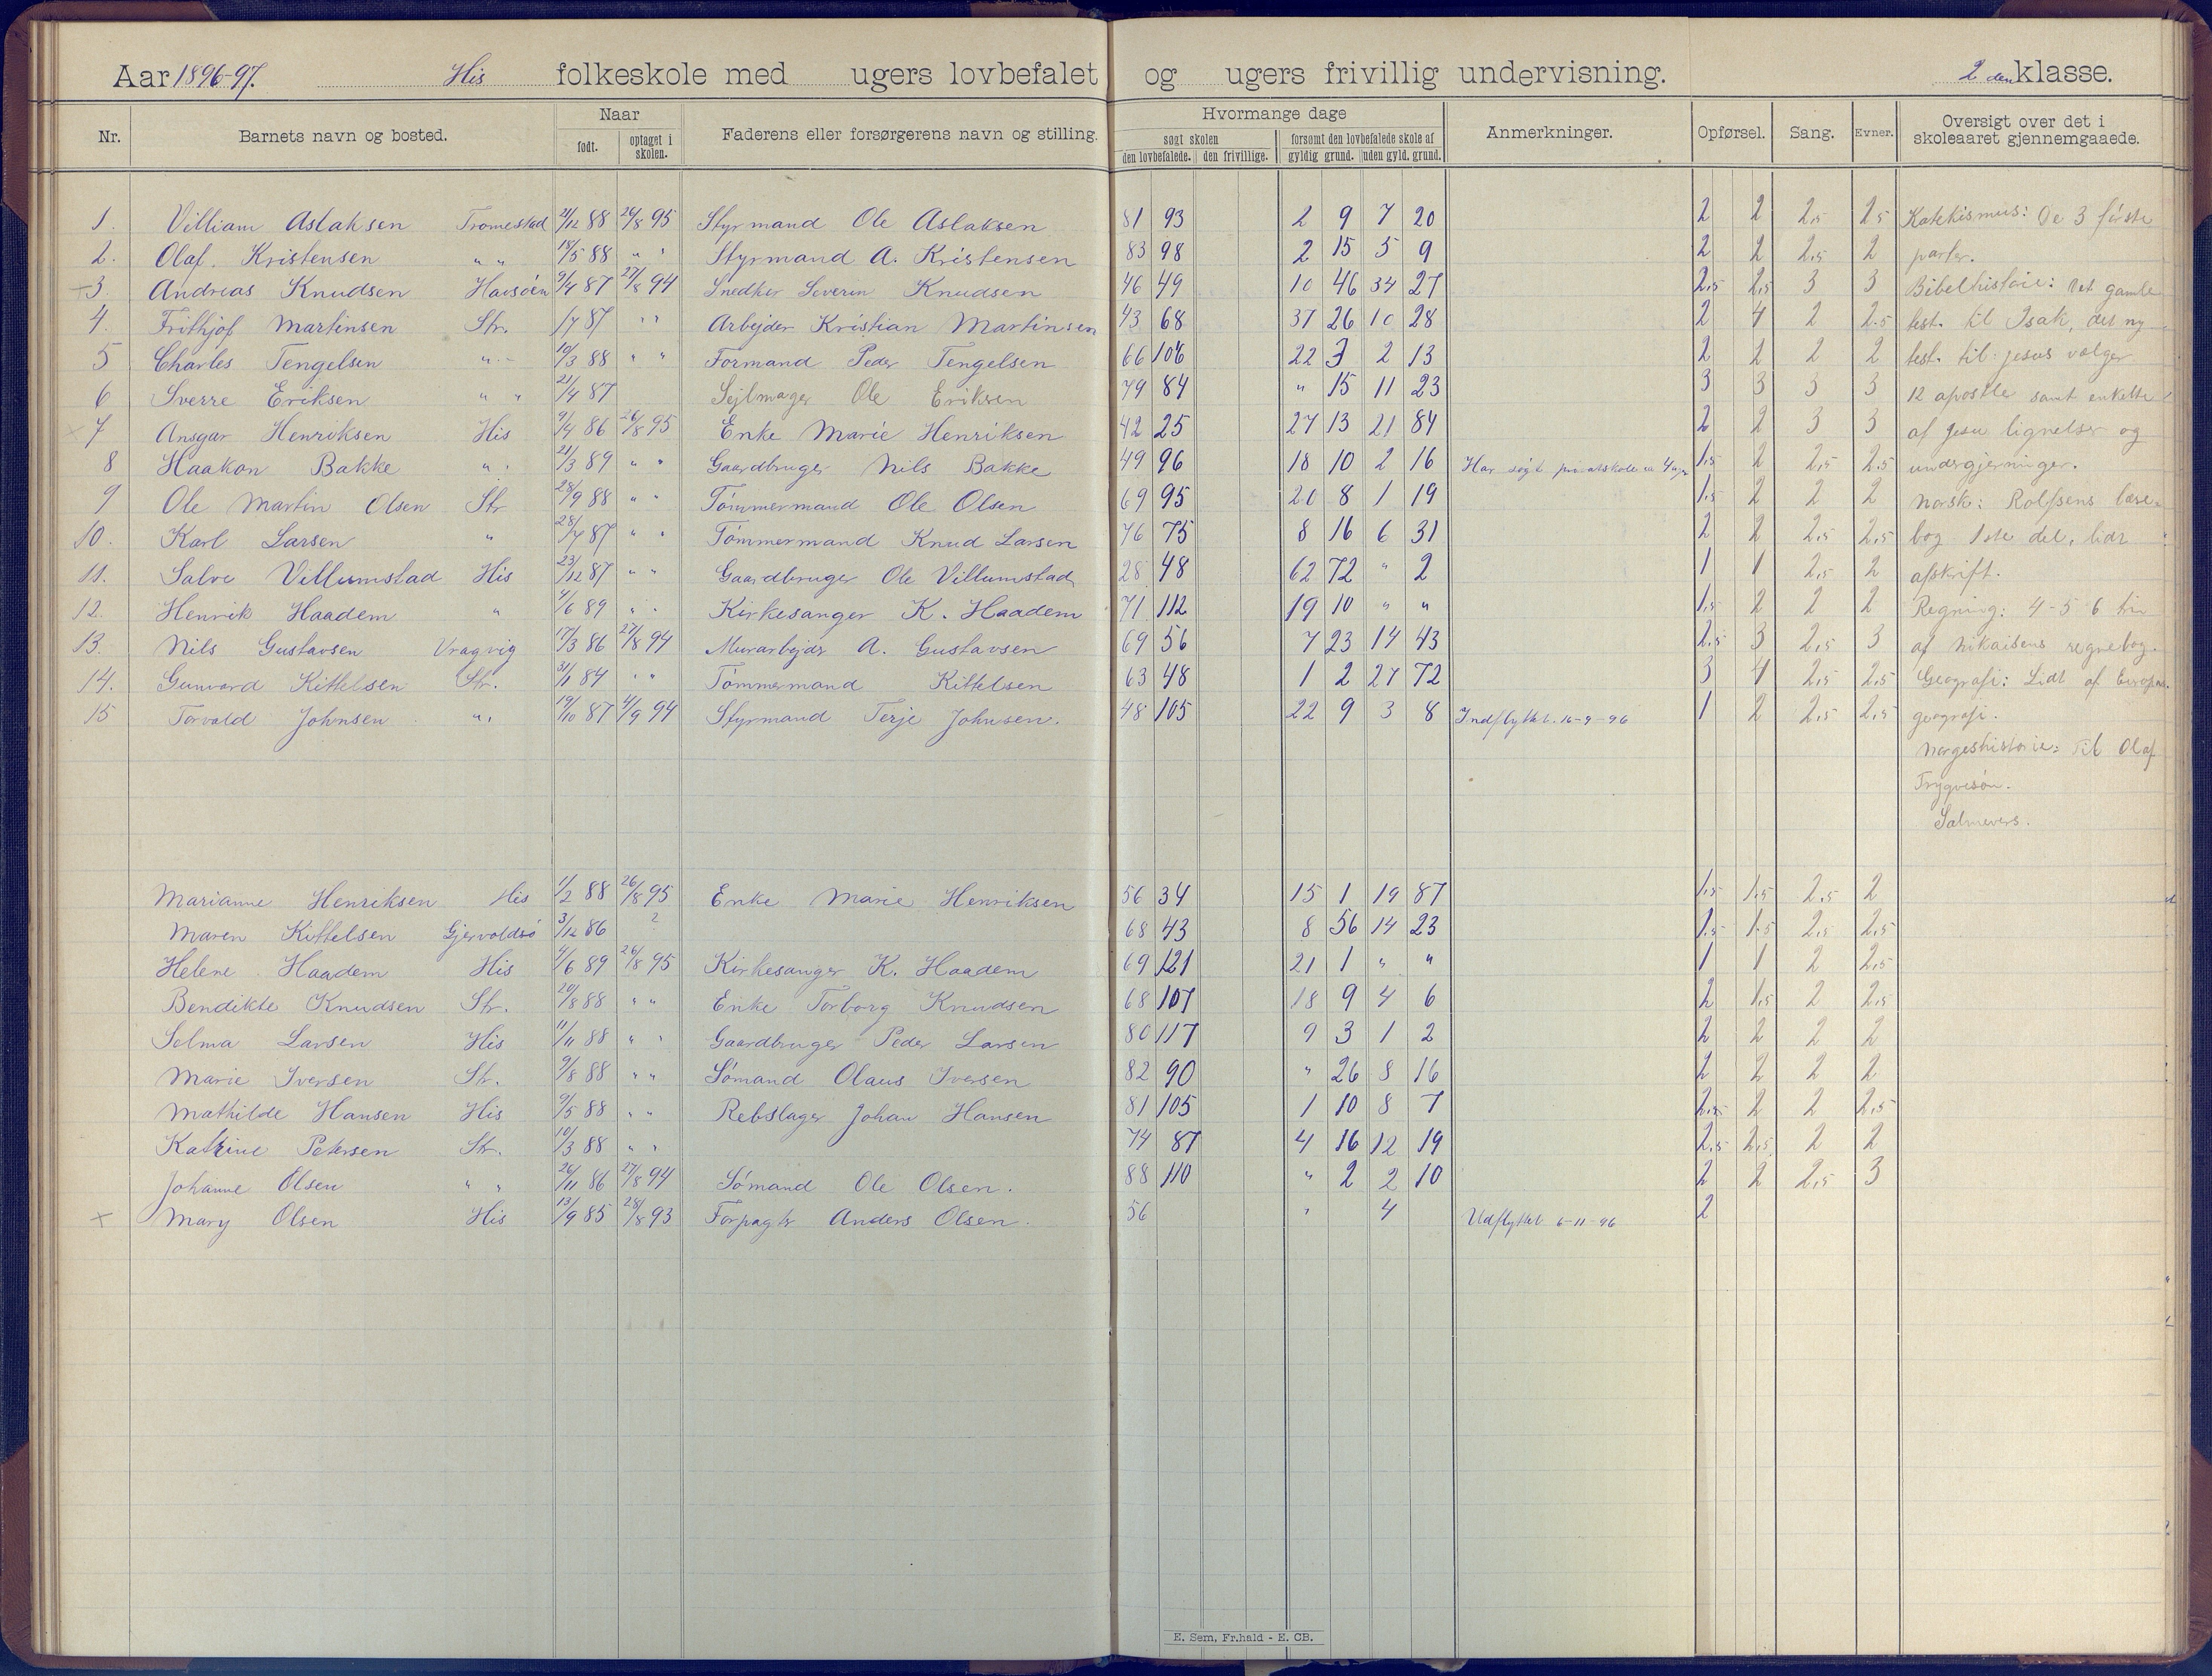 Aar 1896-97. His folkeskole med ugers lovbefalet og ugers frivillig undervisning. 2 den klasse.
Nr. Barnets navn og bosted. Naar født. optaget i skolen. Faderens eller forsørgerens navn og stilling. Hvormange dage søgt skolen den lovbefalede. den frivillige. forsømt den lovbefalede skole af gyldig grund. uden gyld. grund. Anmerkninger. Opførsel. Sang. Evner. Oversigt over det i skoleaaret gjennemgaaede.
1. Villiam Aslaksen Tromestad 21/12 88 26/8 95 Styrmand Ole Aslaksen 81 93 2 9 7 20 2 2 2,5 2,5 Katekismus: De 3 første
2. Olaf. Kristensen " " 18/5 88 " " Styrmand A. Kristensen 83 98 2 15 5 9 2 2 2,5 2 parter.
3. Andreas Knudsen Havsøen 9/4 87 27/8 94 Snedker Severin Knudsen 46 49 10 46 34 27 2,5 2,5 3 3 Bibelhistorie: Det gamle
4. Frithjof Martinsen Str. 1/7 87 " " Arbejder Kristian Martinsen 43 68 37 26 10 28 2 4 2 2.5 test. til Isak, det ny
5 Charles Tengelsen " " 10/3 88 " " Formand Peder Tengelsen 66 106 22 3 2 13 2 2 2 2 test. til Jesus vælger
6 Sverre Eriksen " " 21/4 87 Sejlmager Ole Eriksen 79 84 " 15 11 23 3 3 3 3 12 apostle samt enkelte
× 7 Ansgar Henriksen His 9/4 86 26/8 95 Enke Marie Henriksen 42 25 27 13 21 84 2 2 3 3 af Jesu lignelser og
8 Haakon Bakke " " 21/3 89 " " Gaardbruger Nils Bakke 49 96 18 10 2 16 Har søgt privatskole 1,5 2 2,5 2.5 undergjerninger.
9 Ole Martin Olsen Str 28/9 88 " " Tømmermand Ole Olsen 69 95 20 8 1 19 1,5 2 2 2 Norsk: Rolfsens læse-
10. Karl Larsen " 28/7 87 " " Tømmermand Knud Larsen 76 75 8 16 6 31 2 2 2,5 2,5 bog 1ste del, lidt
11. Salve Villumstad His 23/12 87 " " Gaardbruger Ole Villumstad 28 48 62 72 " 2 1 1 2,5 2 afskrift.
12. Henrik Haadem " 4/6 89 " " Kirkesanger K. Haadem 71 112 19 10 " " 1,5 2 2 2 Regning: 4-5 6 trin
13. Nils Gustavsen Vragvig 17/3 86 27/8 94 Murarbejder A. Gustavsen 69 56 7 23 14 43 2,5 3 2,5 3 af Nikaisens regnebog.
14. Gunvard Kittelsen Str. 31/1 84 " " Tømmermand Kittelsen 63 48 1 2 27 72 3 4 2,5 2,5 Geografi: Lidt af Europas
15 Torvald Johnsen " " 19/10 87 4/9 94 Styrmand Terje Johnsen. 48 105 22 9 3 8 Indflyttet. 16-9-96 1 2 2,5 2,5 geografi.
Norgeshistorie: Til Olaf
Trygvesøn.
Salmevers.
Marianne Henriksen His 1/2 88 26/8 95 Enke Marie Henriksen 56 34 15 1 19 87 1,5 1,5 2,5 2
Maren Kittelsen Gjervoldsø 3/12 86 ? 68 43 8 56 14 23 1,5 1,5 2,5 2,5
Helene Haadem His 4/6 89 26/8 95 Kirkesanger K. Haadem 69 121 21 1 " " 1 1 2 2,5
Bendikte Knudsen Str. 20/8 88 " " Enke Torborg Knudsen 68 107 18 9 4 6 2 1,5 2 2,5
Selma Larsen His 11/11 88 " " Gaardbruger Peder Larsen 80 117 9 3 1 2 2 2 2 2
Marie Iversen Str. 9/8 88 " " Sømand Olaus Iversen 82 90 " 26 8 16 2 2 2 2
Mathilde Hansen His 9/5 88 " " Rebslager Johan Hansen 81 105 1 10 8 7 2,5 2 2 2,5
Katrine Petersen Str. 10/3 88 " " 74 87 4 16 12 19 2,5 2,5 2 2
Johanne Olsen " " 26/11 86 27/8 94 Sømand Ole Olsen. 88 110 " 2 2 10 2 2 2,5 3
+ Mary Olsen His 13/9 85 28/8 93 Forpagter Anders Olsen. 56 " 4 Udflyttet 6-11-96 2
E. Sem, Fr.hald - E. CB.